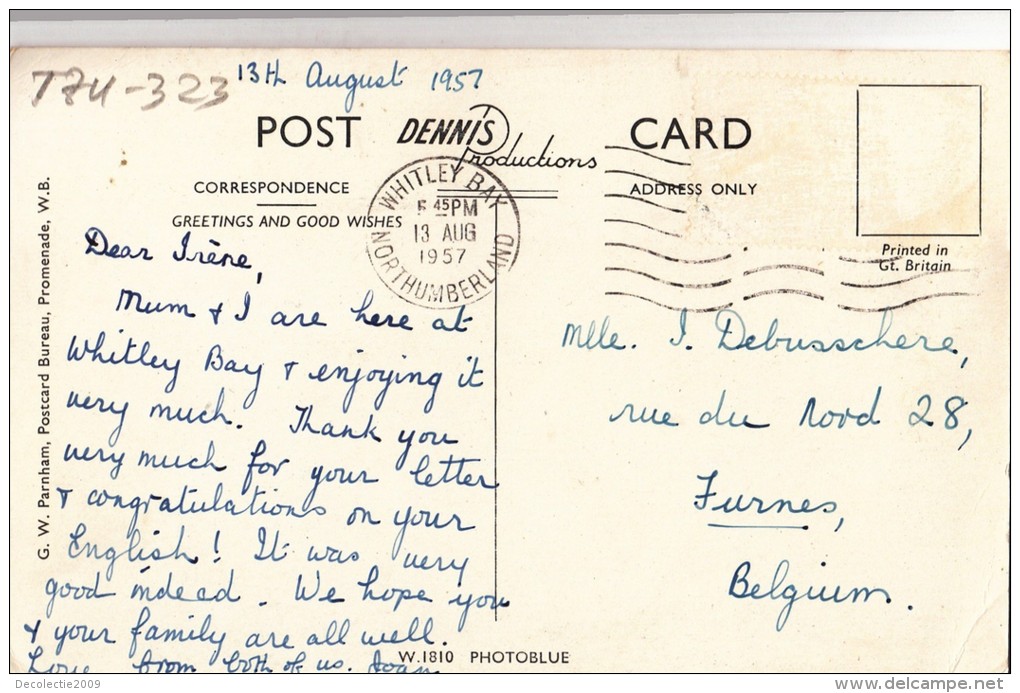 T74-323
13th August 1957
POST DENNIS Productions CARD
CORRESPONDENCE
ADDRESS ONLY
GREETINGS AND GOOD WISHES
WHITLEY BAY
5 45PM
13 AUG
1957
NORTHUMBERLAND
Printed in
Gt. Britain
G. W. Parnham, Postcard Bureau, Promenade, W.B.
Dear Irène,
Mum & I are here at
Whitley Bay & enjoying it
very much. Thank you
very much for your letter
& congratulations on your
English! It was very
good indeed. We hope you
& your family are all well.
Love from both of us. Joan
Mlle. I. Debusschere,
rue du Nord 28,
Furnes,
Belgium.
W.1810 PHOTOBLUE
Decolectie2009
delcampe.net